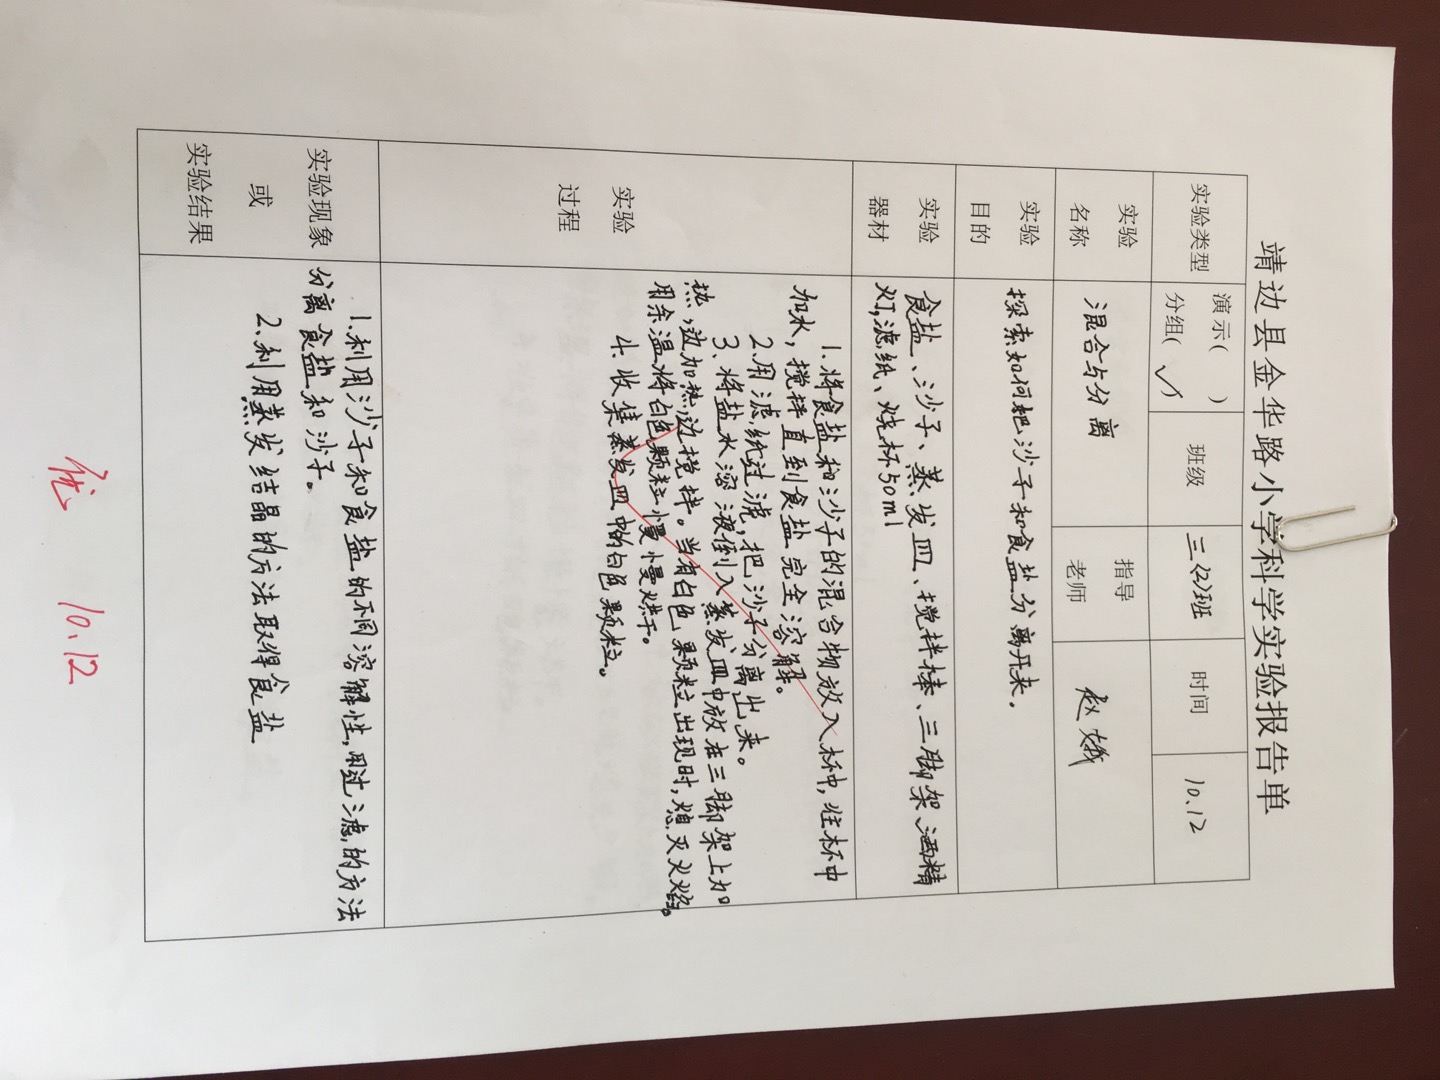 靖边县金华路小学科学实验报告单
实验类型
演示(  )
分组( ✓ )
班级
三(2)班
时间
10.12
实验
名称
混合与分离
指导
老师
赵娥
实验
目的
探索如何把沙子和食盐分离开来。
实验
器材
食盐、沙子、蒸发皿、搅拌棒、三脚架、酒精
灯,滤纸、烧杯50ml
实验
过程
1.将食盐和沙子的混合物放入杯中,往杯中
加水,搅拌直到食盐完全溶解。
2.用滤纸过滤,把沙子分离出来。
3.将盐水溶液倒入蒸发皿中放在三脚架上加
热,边加热,边搅拌。当有白色颗粒出现时,熄灭火焰。
用余温将白色颗粒慢慢烘干。
4.收集蒸发皿中的白色颗粒。
实验现象
或
实验结果
1.利用沙子和食盐的不同溶解性,用过滤的方法
分离食盐和沙子。
2.利用蒸发结晶的方法取得食盐
优 10.12